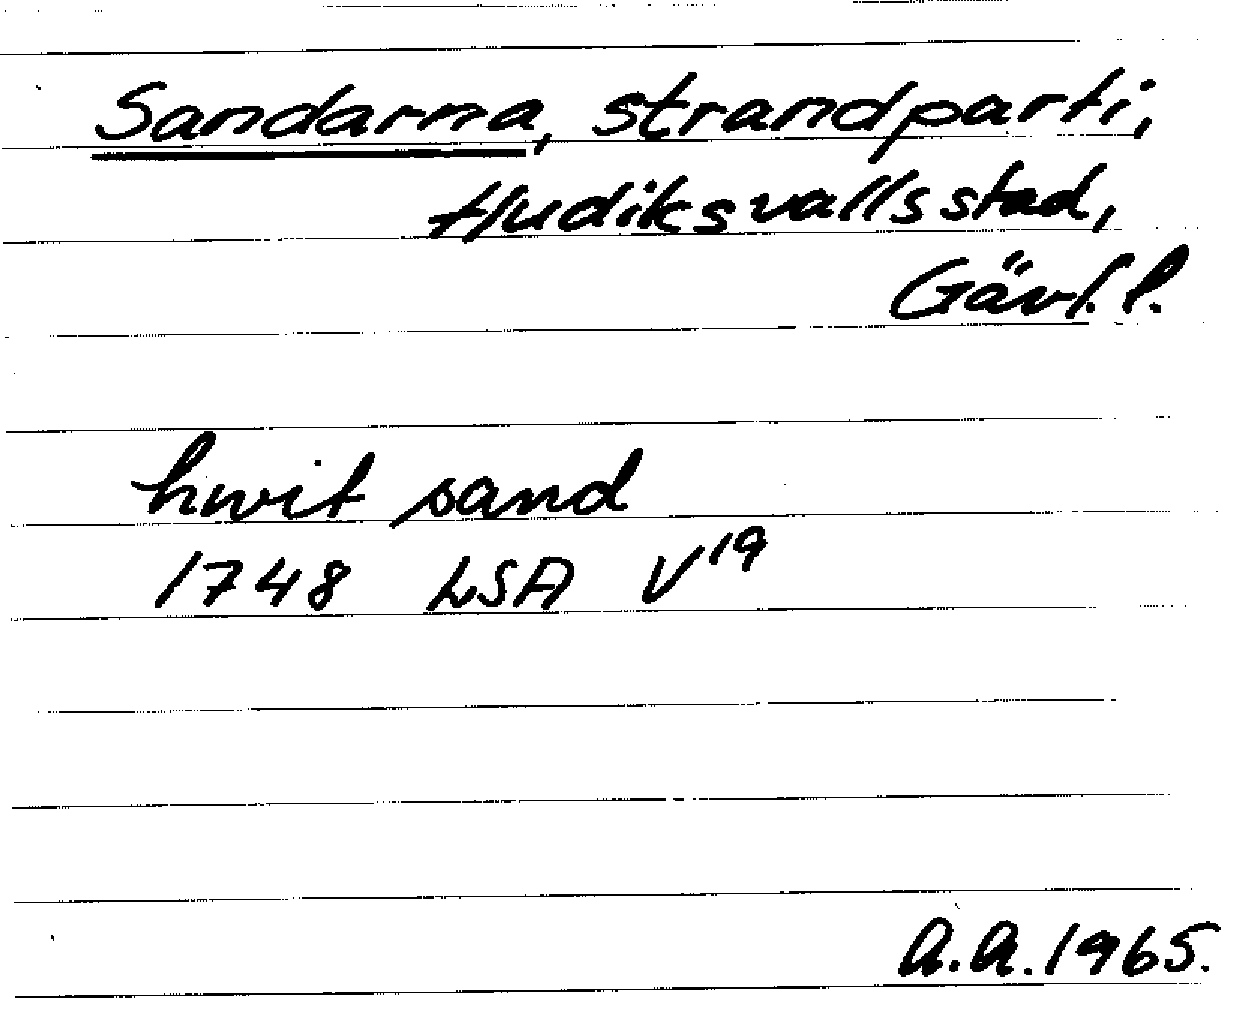 Sandarna, strandparti,
Hudiksvalls stad,
Gävl. l.
hwit sand
1748 LSA V¹⁹
A.A. 1965.